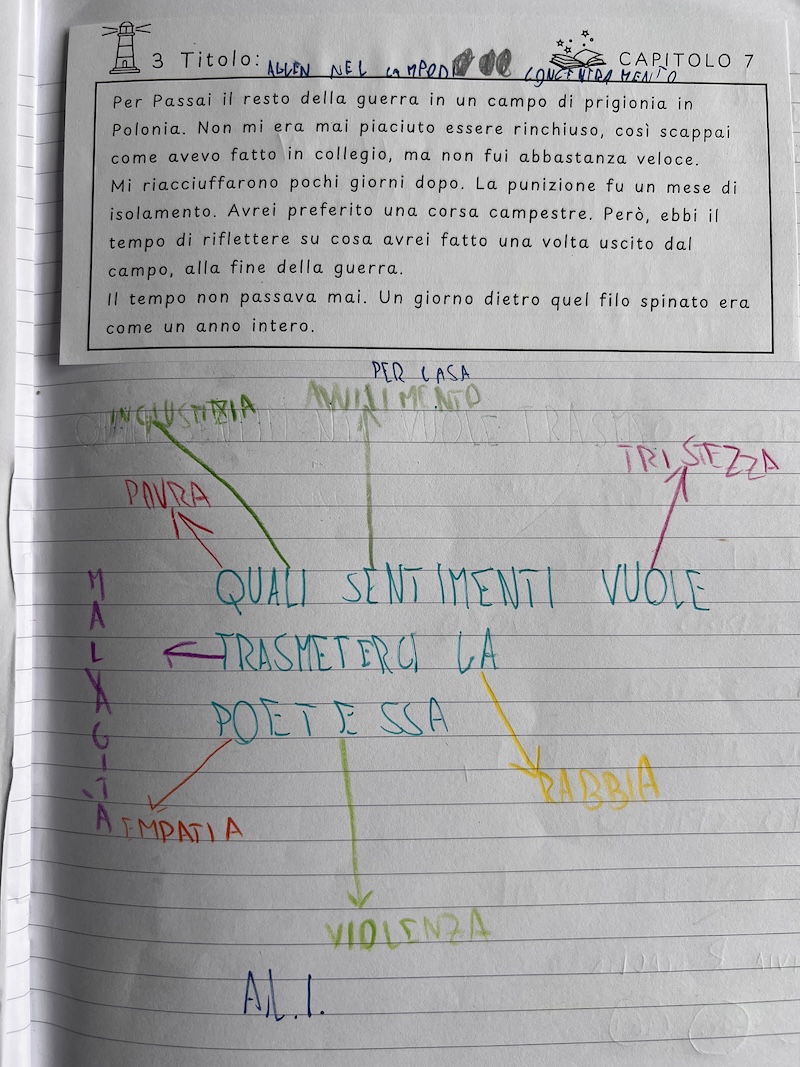 3 Titolo: ALLEN NEL CAMPO DI CONCENTRAMENTO CAPITOLO 7
Per Passai il resto della guerra in un campo di prigionia in
Polonia. Non mi era mai piaciuto essere rinchiuso, così scappai
come avevo fatto in collegio, ma non fui abbastanza veloce.
Mi riacciuffarono pochi giorni dopo. La punizione fu un mese di
isolamento. Avrei preferito una corsa campestre. Però, ebbi il
tempo di riflettere su cosa avrei fatto una volta uscito dal
campo, alla fine della guerra.
Il tempo non passava mai. Un giorno dietro quel filo spinato era
come un anno intero.
PER CASA
INGIUSTIZIA
AVVILIMENTO
TRISTEZZA
PAURA
QUALI SENTIMENTI VUOLE
TRASMETERCI LA
POETESSA
MALVAGITÀ
RABBIA
EMPATIA
VIOLENZA
A.L.I.